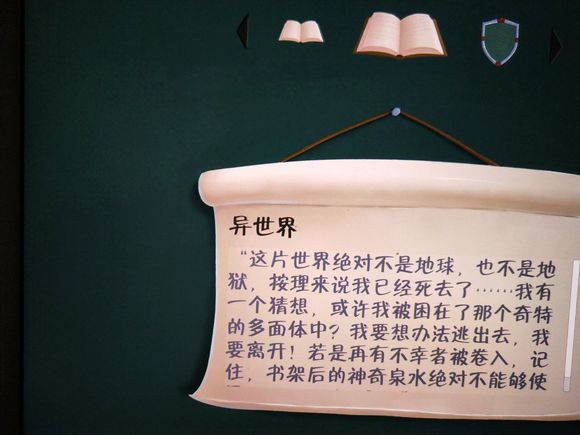 异世界
“这片世界绝对不是地球，也不是地
狱，按理来说我已经死去了……我有
一个猜想，或许我被困在了那个奇特
的多面体中？我要想办法逃出去，我
要离开！若是再有不幸者被卷入，记
住，书架后的神奇泉水绝对不能够使